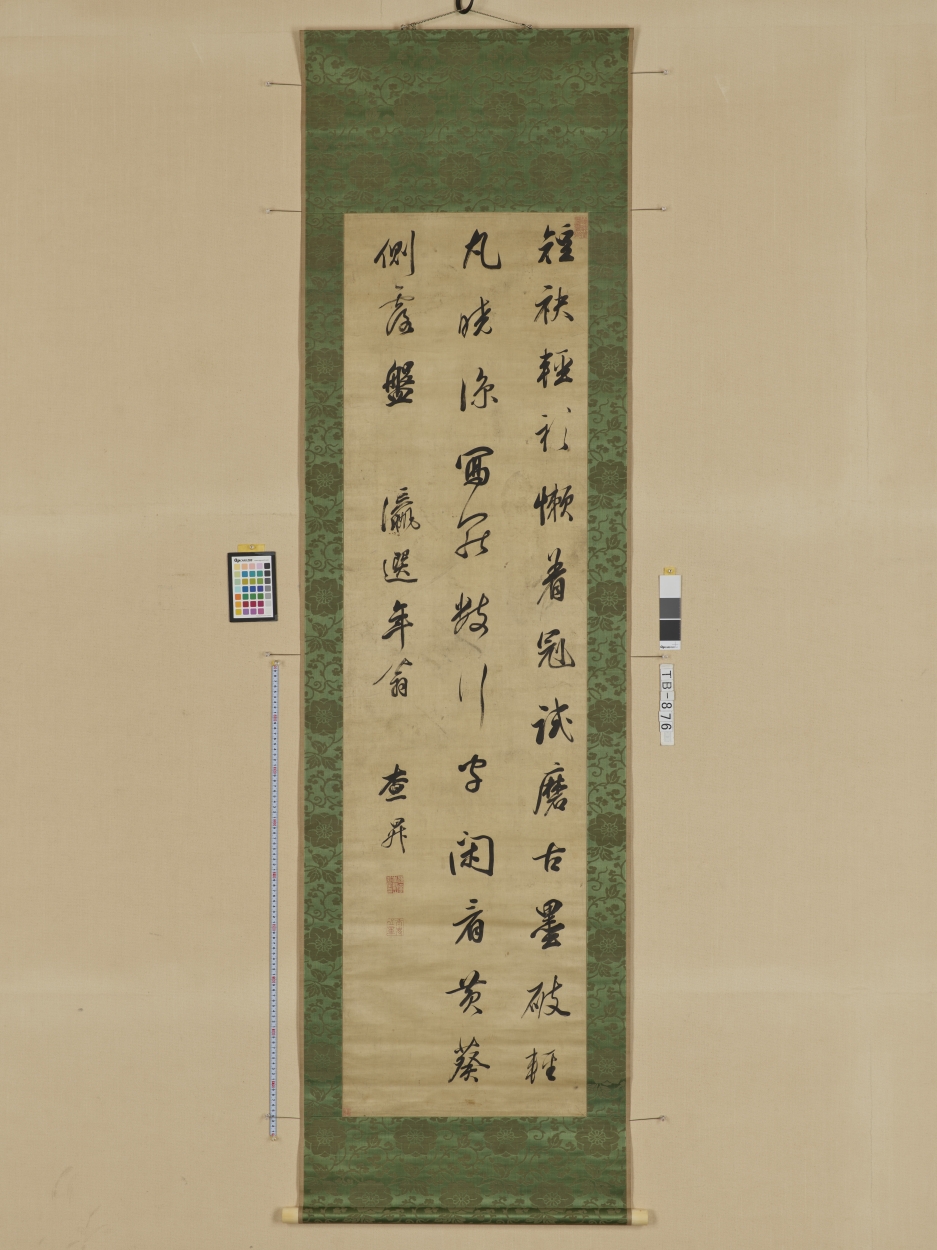 短袂輕衫懶着冠試磨古墨破輕
丸曉涼寫罷數行字閑看黃葵
側露盤 瀛選年翁 查昇
TB-876